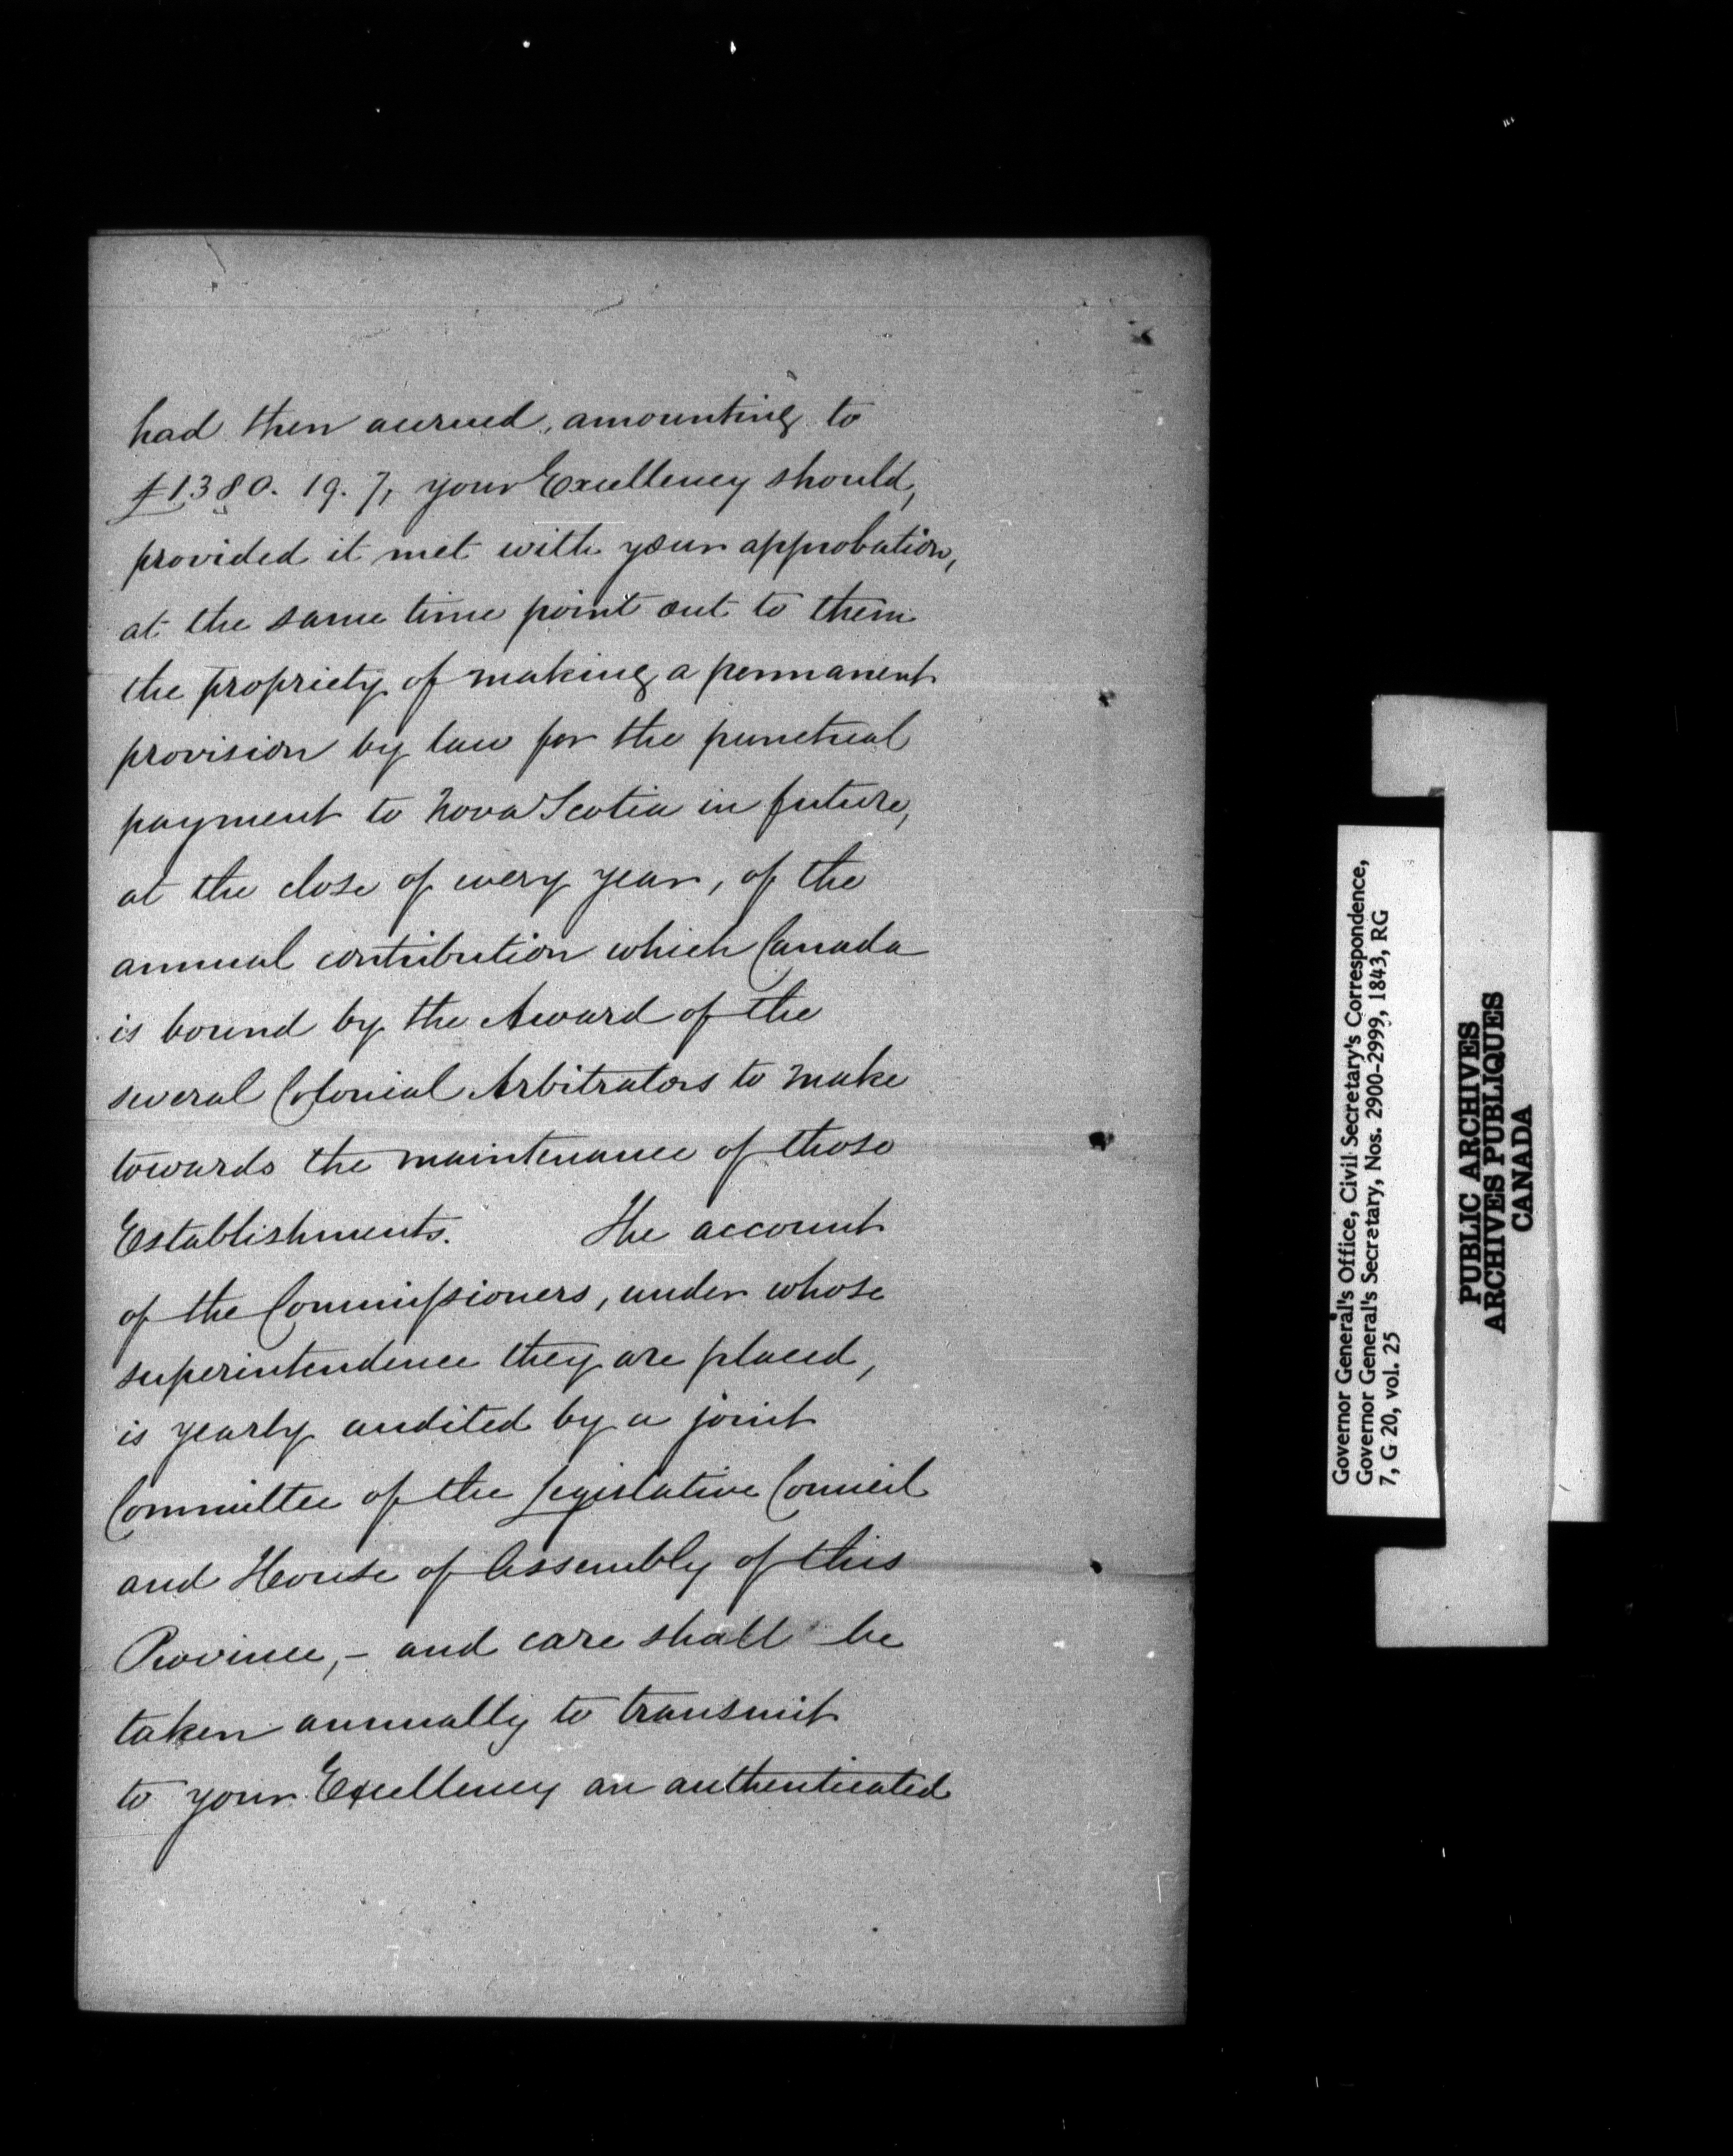 had then accrued, amounting to
£1380. 19. 7, your Excellency should,
provided it met with your approbation,
at the same time point out to them
the propriety of making a permanent
provision by law for the punctual
payment to Nova Scotia in future,
at the close of every year, of the
annual contribution which Canada
is bound by the Award of the
several Colonial Arbitrators to make
towards the maintenance of those
Establishments. The account
of the Commissioners, under whose
superintendence they are placed,
is yearly audited by a joint
Committee of the Legislative Council
and House of Assembly of this
Province, - and care shall be
taken annually to transmit
to your Excellency an authenticated
Governor General's Office, Civil Secretary's Correspondence,
Governor General's Secretary, Nos. 2900-2999, 1843, RG
7, G 20, vol. 25
PUBLIC ARCHIVES
ARCHIVES PUBLIQUES
CANADA